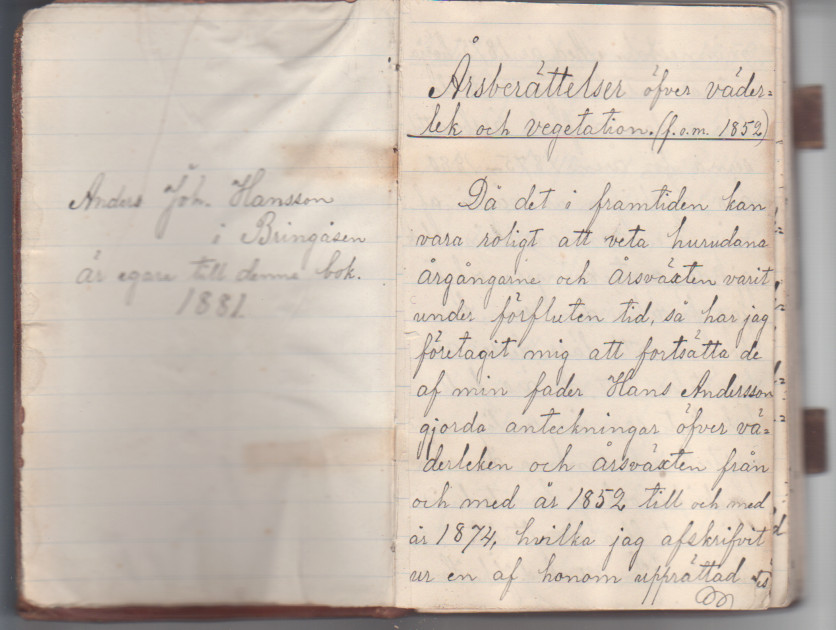 Anders Joh. Hansson
i Bringåsen
är egare till denna bok.
1881.
Årsberättelser öfver väder=
lek och vegetation. (f.o.m. 1852)
Då det i framtiden kan
vara roligt att veta hurudana
årgångarne och årsväxten varit
under förfluten tid, så har jag
företagit mig att fortsätta de
af min fader Hans Andersson
gjorda anteckningar öfver vä=
derleken och årsväxten från
och med år 1852 till och med
år 1874, hvilka jag afskrifvit
ur en af honom upprättad